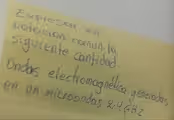 Expresar en
notación normal la
siguiente cantidad.
Ondas electromagnética generados
en un microondas 2.4 GHz